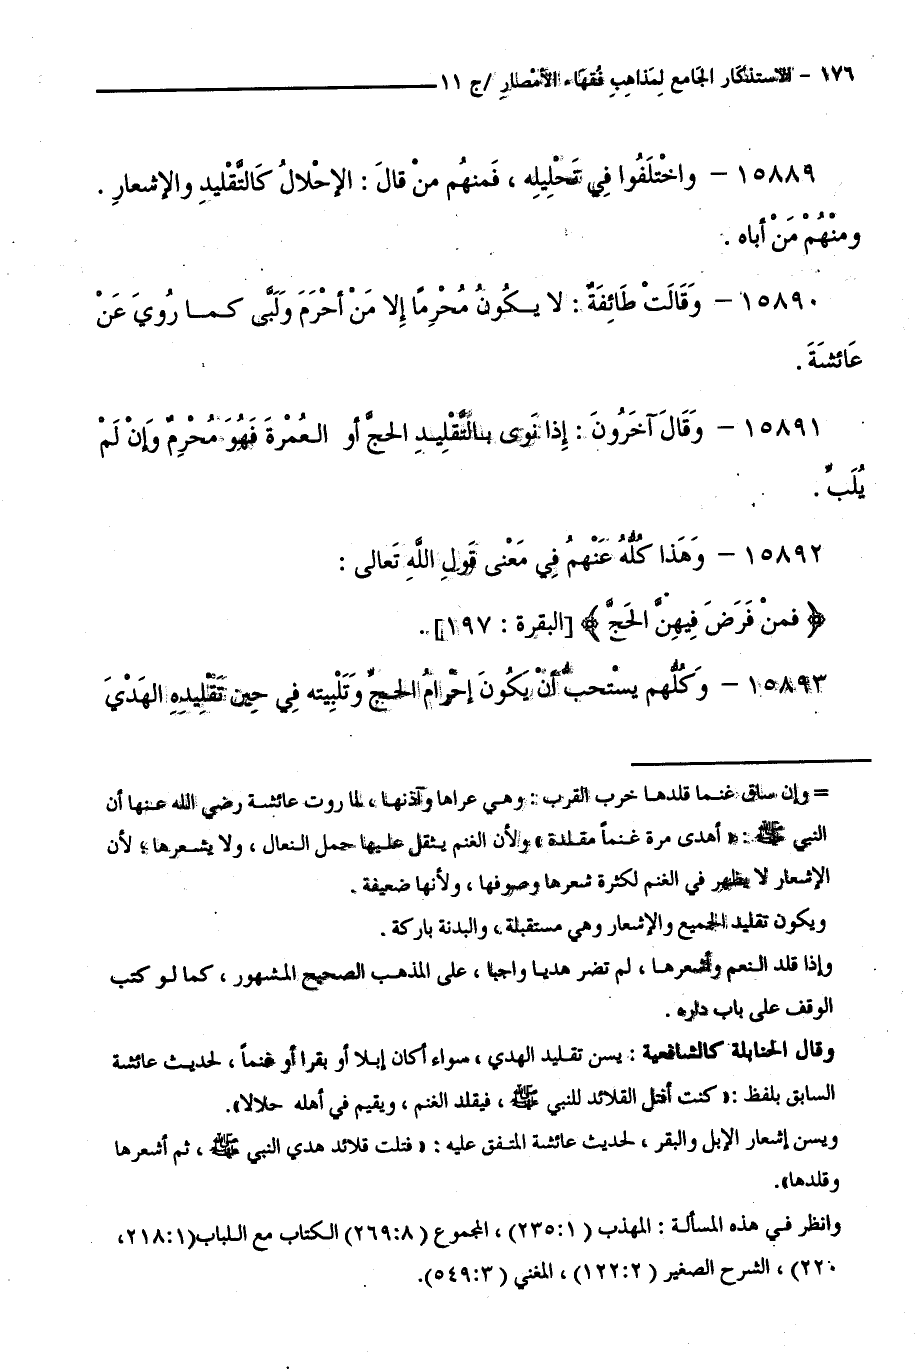 ١٧٦ - الاستذكار الجامع لِمَذاهِبِ فُقهَاء الأَمْصارِ /ج ١١
١٥٨٨٩ - واخْتَلَفُوا فِي تَحْلِيلِه ، فَمنهُم منْ قالَ : الإحْلالُ كَالتَّقْليدِ والإشعارِ .
ومنْهُمْ مَنْ أباه .
١٥٨٩٠ - وَقَالَتْ طَائِفَةٌ : لا يـكُونُ مُحْرِمًا إلا مَنْ أحْرَمَ وَلَبَّى كـمـا رُويَ عَنْ
عَائشَةَ .
١٥٨٩١ - وَقَالَ آخَرُونَ : إذا نَوَى بـالتَّقْلِيـدِ الحجَّ أو العُمْرةَ فَهُوَ مُحْرِمٌ وَإنْ لَمْ
يُلَبِّ .
١٥٨٩٢ - وَهَذا كُلُّهُ عَنْهمُ فِي مَعْنى قَولِ اللَّهِ تَعالى :
﴿ فمنْ فَرَضَ فِيهِنَّ الحَجَّ ﴾ [البقرة : ١٩٧] .
١٥٨٩٣ - وَكُلُّهم يستْحبُّ أنْ يَكُونَ إحْرامُ الحـجِّ وَتَلْبِيته فِي حِينِ تَقْلِيدِهِ الهَدْيَ
= وإن ساق غنـما قلدهـا خرب القرب : وهـي عراها وآذنهـا ، لما روت عائشـة رضي الله عـنها أن
النبي ﷺ : « أهدى مرة غـنماً مقـلدة » ولأن الغنم يـثقل عليـها حمل النعال ، ولا يشـعرها ؛ لأن
الإشعار لا يظهر في الغنم لكثرة شعرها وصوفها ، ولأنها ضعيفة .
ويكون تقليد الجميع والإشعار وهي مستقبلة ، والبدنة باركة .
وإذا قلد النعم وأشعرهـا ، لم تضر هديـا واجبا ، على المذهـب الصحيح المشهور ، كما لـو كتب
الوقف على باب داره .
وقال الحنابلة كالشافعية : يسن تقـليد الهدي ، سواء أكان إبـلا أو بقرا أو غنمـاً ، لحديـث عائشة
السابق بلفظ : « كنت أفتل القلائد للنبي ﷺ ، فيقلد الغنم ، ويقيم في أهله حلالا» .
ويسن إشعار الإبل والبقر ، لحديث عائشة المتفق عليه : « فتلت قلائد هدي النبي ﷺ ، ثم أشعرها
وقلدها» .
وانظر فـي هذه المسألـة : المهذب ( ١ : ٢٣٥ ) ، المجموع ( ٨ : ٢٦٩) الـكتاب مع الـلباب(١ : ٢١٨ ،
٢٢٠) ، الشرح الصغير ( ٢ : ١٢٢) ، المغني ( ٣ : ٥٤٩) .